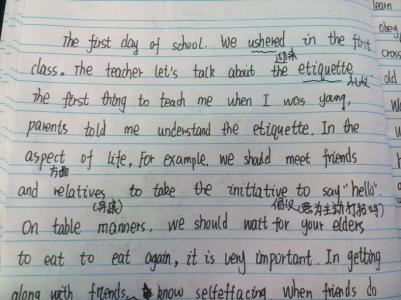 The first day of school. We ushered in the first
迎来
class. The teacher let's talk about the etiquette
礼仪
The first thing to teach me when I was young,
parents told me understand the etiquette. In the
aspect of life, For example, we should meet friends
方面
and relatives to take the initiative to say "hello".
(亲戚)
倡议(意为主动打招呼)
On table manners, we should wait for your elders
to eat to eat again, it is very important. In getting
along with friends, know selfeffacing, when friends do
learn
obey
cross
old